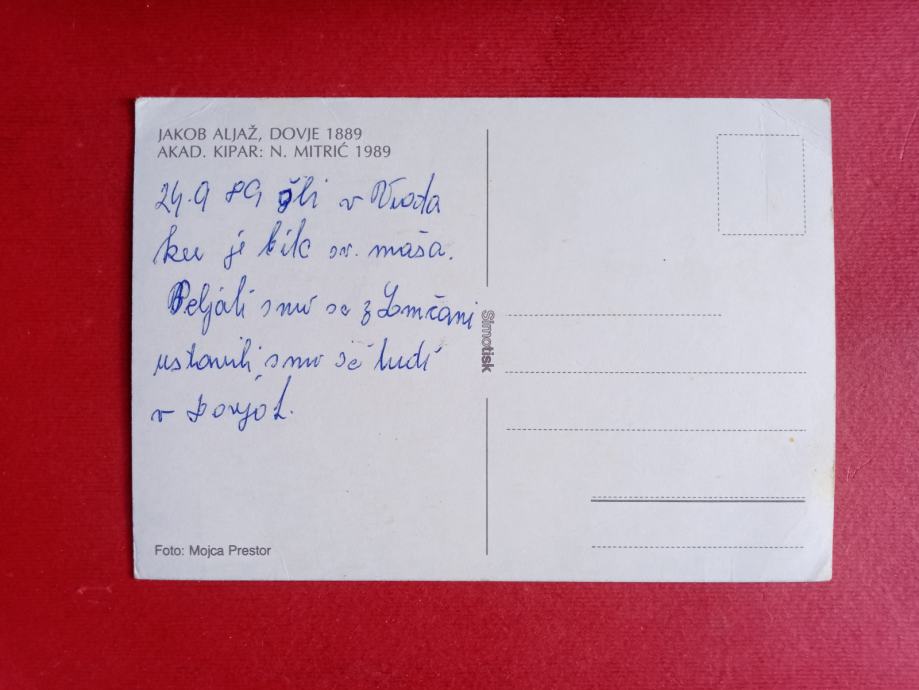 JAKOB ALJAŽ, DOVJE 1889
AKAD. KIPAR: N. MITRIĆ 1989
24.9 89 šli v Vrata
ker je bila sv. maša.
Peljali smo se z
ustavili smo se tudi
v
Simotisk
Foto: Mojca Prestor